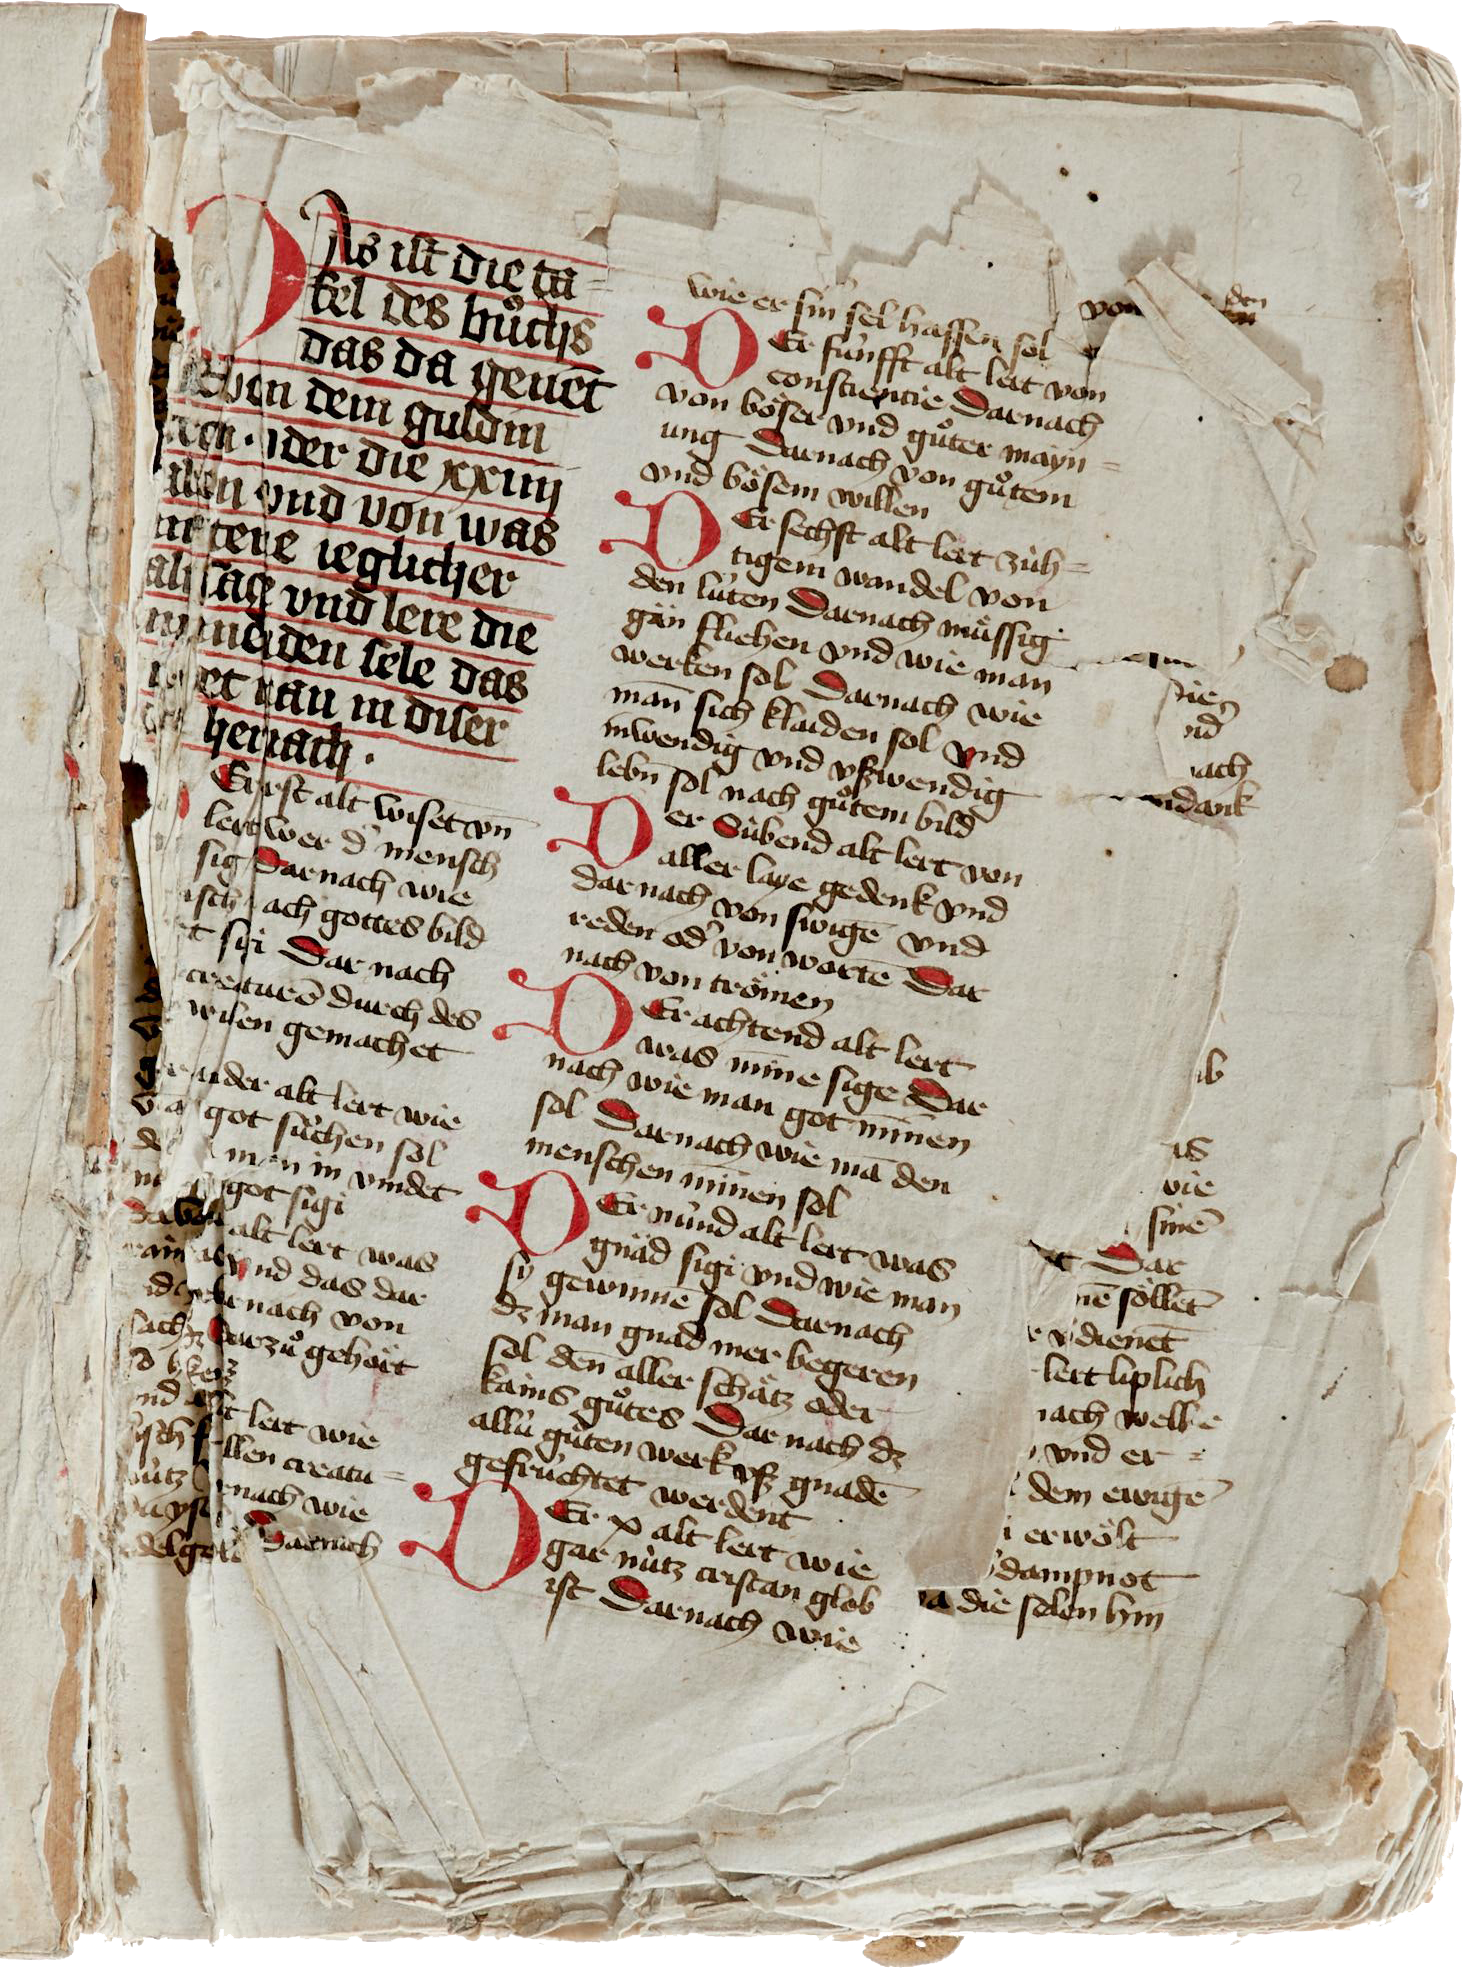 DAs ist die ta=
fel des bůchs
das da genēt
von dem guldin
tron · oder die xxiiij
alten vnd von was
materie ieglicher
alt sag vnd lere die
minneden sele das
hernach ·
Er erst alt wiset vn̄
lert wer d' mensch
sig Darnach wie
mensch nach gottes bild
sigi Dar nach
creaturē durch des
willen gemachet
ander alt lert wie
got sůchen sol
man in vindet
got sigi
alt lert was
vnd das dar
Darnach von
darzů gehört
alt lert wie
allen creatu=
Darnach wie
Darnach
wie er sin sel hassen sol
DEr fúnfft alt lert von
conscientie Darnach
von böser vnd gůter mayn=
ung Darnach von gůtem
vnd bösem willen
DEr sechst alt lert zúh=
tigem wandel von
den lúten Darnach müssig
gän fliehen vnd wie man
werken sol Darnach wie
man̄ sich klaiden sol vnd
inwendig vnd vßwendig
lebn̄ sol nach gůtem bild
Der Sübend alt lert von
aller laye gedenk vnd
darnach von swigē vnd
reden od' von wortē Dar
nach von trömen
DEr achtend alt lert
was min̄e sige Dar
nach wie man got min̄en
sol Darnach wie mā den
menschen min̄en sol
DEr núnd alt lert was
gnäd sigi vnd wie man
sy gewinnē sol Darnach
dz man gnad mer begeren
sol den̄ aller schätz oder
kains gůtes Dar nach dz
allú gůten werk vß gnadē
gefrúchtet werdent
DEr x alt lert wie
gar nútz cristan glob
ist Darnach wie
von
den
nach
dank
wie
sinē
Dar
söllēt
v'dienēt
lert liplich
nach welle
vnd er =
dem ewigē
erwölt
v'dampnot
die selen hin